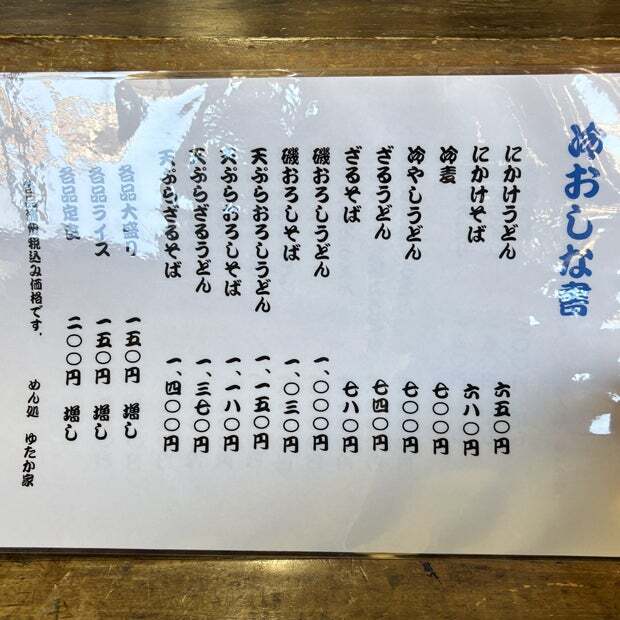 冷おしな書
にかけうどん 六五〇円
にかけそば 六八〇円
冷麦 七〇〇円
冷やしうどん 七〇〇円
ざるうどん 七四〇円
ざるそば 七八〇円
磯おろしうどん 一、〇〇〇円
磯おろしそば 一、〇三〇円
天ぷらおろしうどん 一、一五〇円
天ぷらおろしそば 一、一八〇円
天ぷらざるうどん 一、三七〇円
天ぷらざるそば 一、四〇〇円
各品大盛り 一五〇円 増し
各品ライス 一五〇円 増し
各品定食 二〇〇円 増し
税込み価格です. めん処 ゆたか家